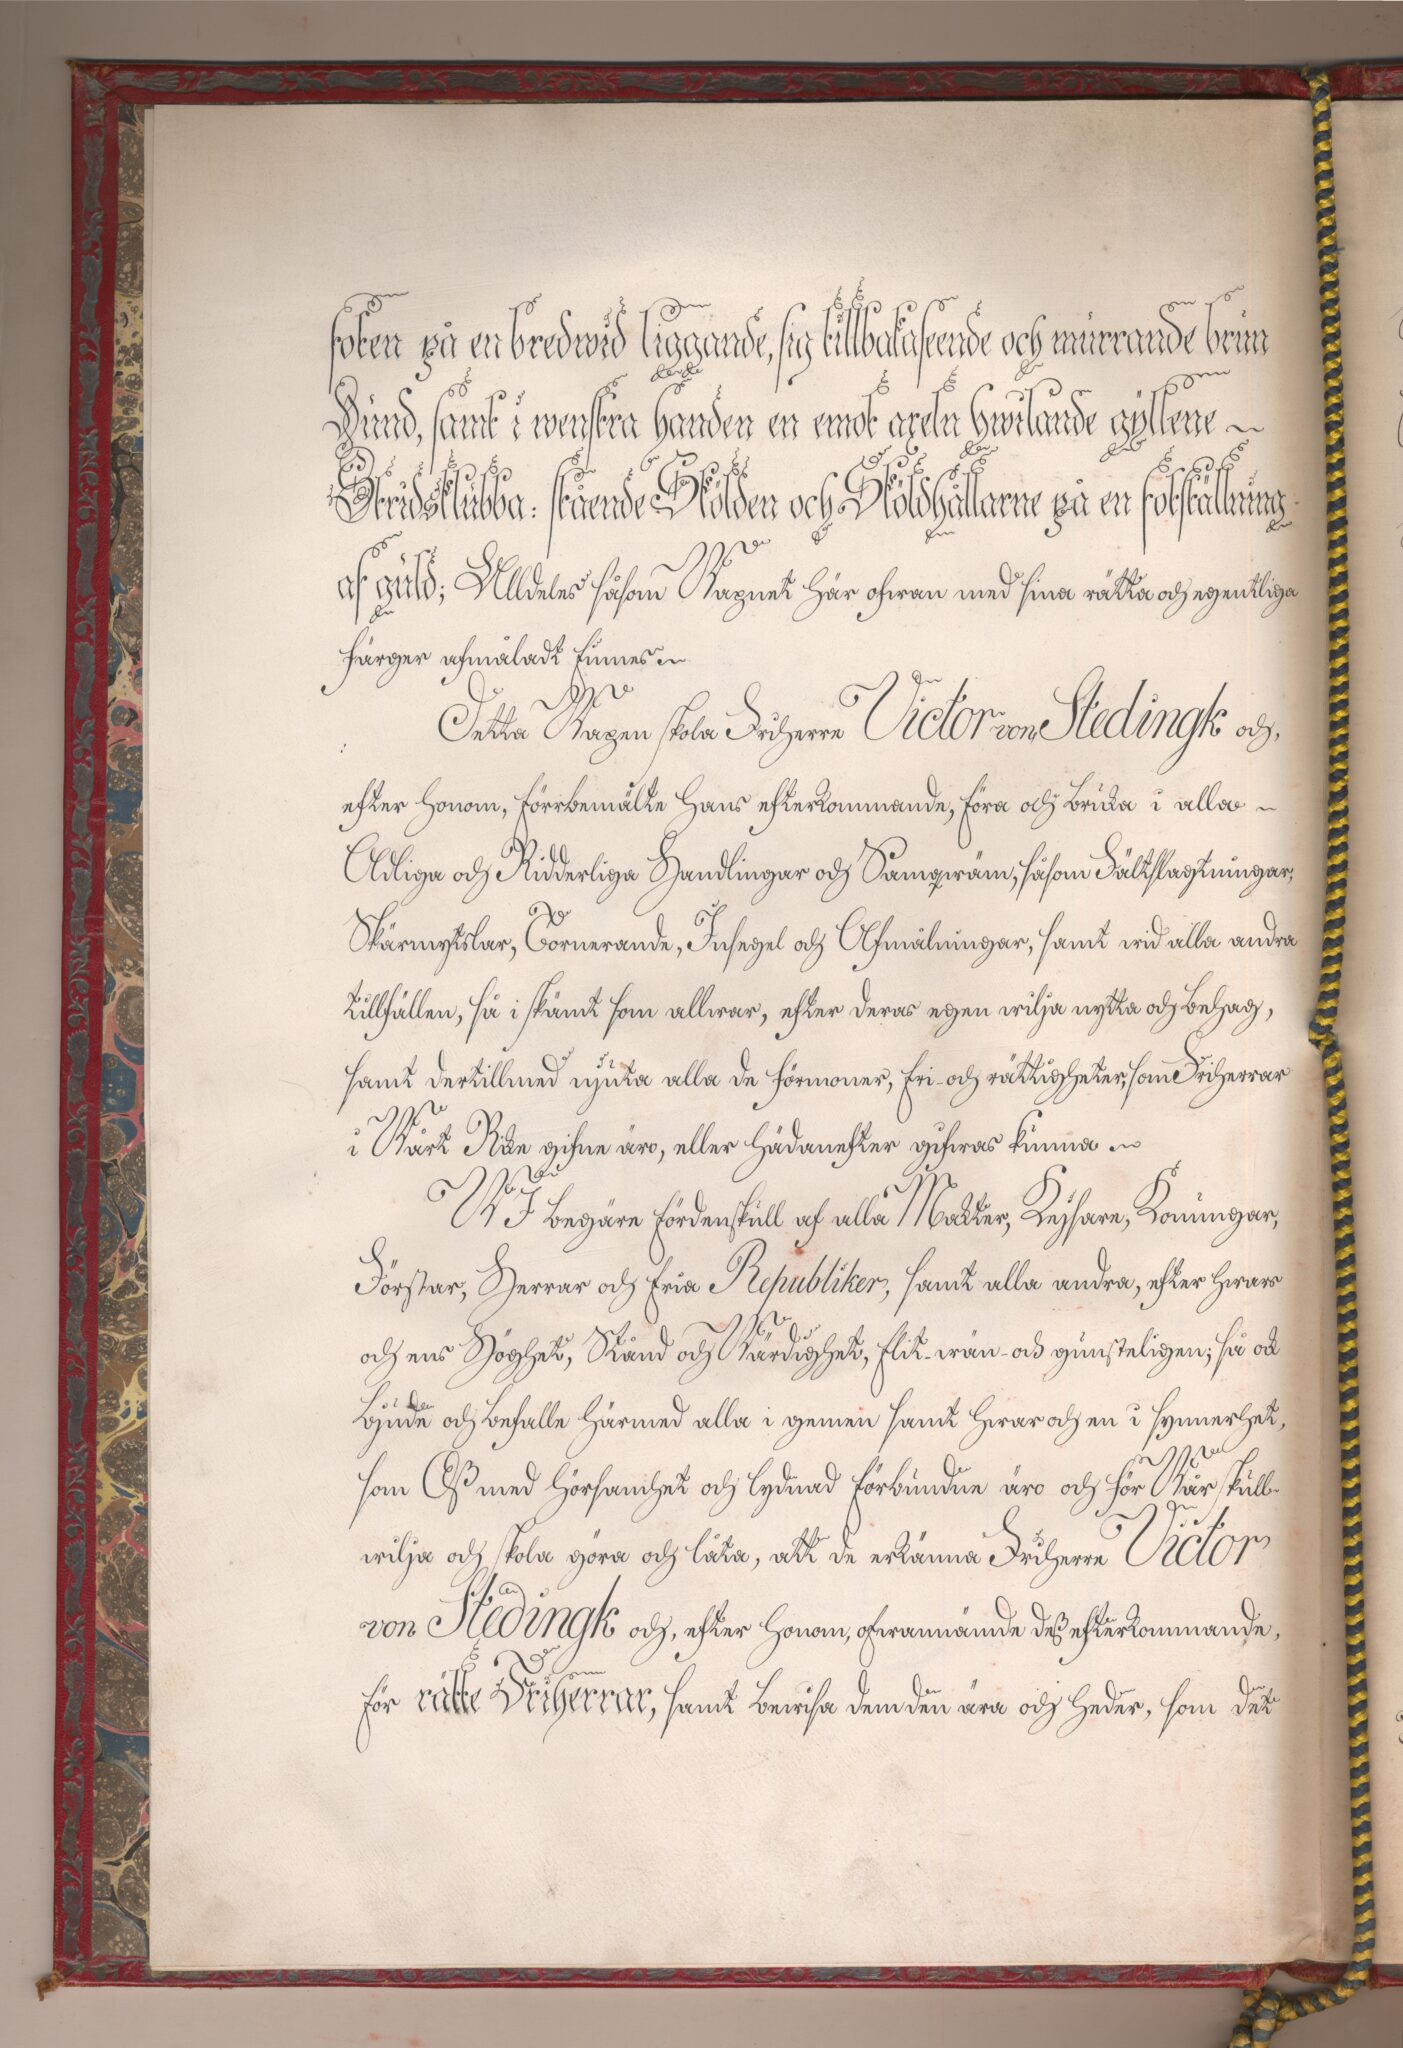 foten på en bredwid liggande, sig tillbakaseende och murrande brun
Hund, samt i wenstra handen en emot axeln hwilande gyllene
Stridsklubba: stående Skölden och Sköldhållarne på en fotställning
af guld; Alldeles såsom Wapnet här ofwan med sina rätta och egentliga
färger afmåladt finnes
Detta Wapen skola Friherre Victor von Stedingk och,
efter honom, förrbemälte Hans efterkommande, föra och bruka i alla
Adliga och Ridderliga Handlingar och Samqwäm, såsom Fältslagtningar,
Skärmytslar, Tornerande, Insegel och Afmålningar, samt wid alla andra
tillfällen, så i skämt som allwar, efter deras egen wilja nytta och behag,
samt dertillmed njuta alla de förmoner, fri- och rättigheter, som Friherrar
i Wårt Rike gifne äro, eller hädanefter gifwas kunna
WJ begäre fördenskull af alla Makter, Kejsare, Konungar,
Förstar, Herrar och fria Republiker, samt alla andra, efter hwars
och ens Höghet, Stånd och Wärdighet, flit- wän- och gunsteligen; så ock
bjude och befalle härmed alla i gemen samt hwar och en i synnerhet,
som Oß med hörsamhet och lydnad förbundne äro och för Wår skull
wilja och skola göra och låta, att de erkänna Friherre Victor
von Stedingk och, efter honom, ofwannämde deß efterkommande,
för rätte Friherrar, samt bewisa dem den ära och heder, som det